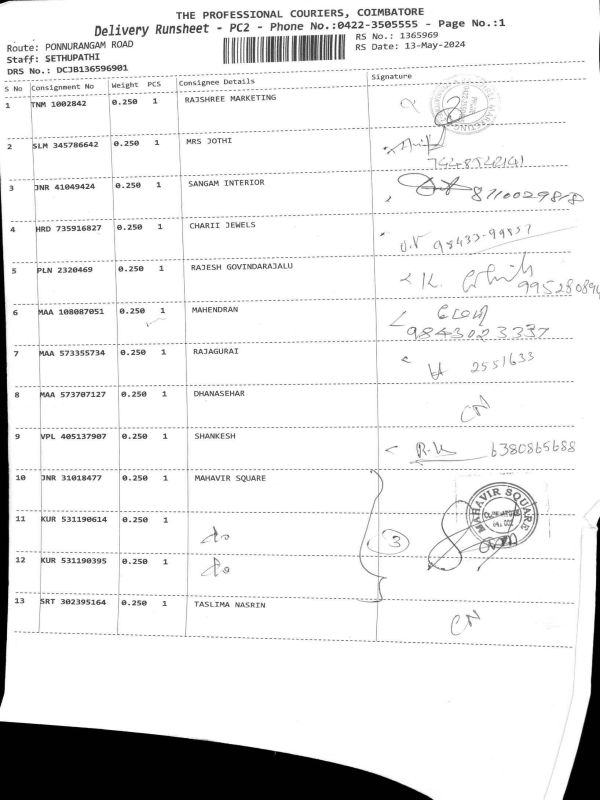 THE PROFESSIONAL COURIERS, COIMBATORE
Delivery Runsheet - PC2 - Phone No.:0422-3505555 - Page No.:1
Route: PONNURANGAM ROAD
RS No.: 1365969
Staff: SETHUPATHI
RS Date: 13-May-2024
DRS No.: DCJB136596901
S No Consignment No Weight PCS Consignee Details Signature
1 TNM 1002842 0.250 1 RAJSHREE MARKETING
2 SLM 345786642 0.250 1 MRS JOTHI
3 JNR 41049424 0.250 1 SANGAM INTERIOR
4 HRD 735916827 0.250 1 CHARII JEWELS
5 PLN 2320469 0.250 1 RAJESH GOVINDARAJALU K.
6 MAA 108087051 0.250 1 MAHENDRAN
9843023337
7 MAA 573355734 0.250 1 RAJAGURAI 2551633
8 MAA 573707127 0.250 1 DHANASEHAR CN
9 VPL 405137907 0.250 1 SHANKESH R.K 6380865688
10 JNR 31018477 0.250 1 MAHAVIR SQUARE MAHAVIR SQUARE
11 KUR 531190614 0.250 1 do 3
12 KUR 531190395 0.250 1 do
13 SRT 302395164 0.250 1 TASLIMA NASRIN CN